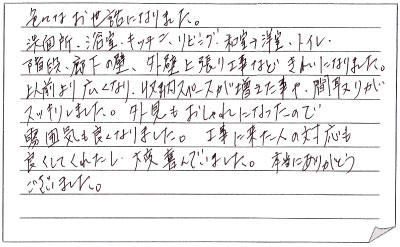 色々なお世話になりました。
洗面所、浴室、キッチン、リビング、和室→洋室、トイレ、
階段、廊下の壁、外壁上張り工事など きれいになりました。
以前より広くなり、収納スペースが増えた事や、間取りが
スッキリしました。外見もおしゃれになったので
雰囲気も良くなりました。工事に来た人の対応も
良くしてくれたし、大変喜んでいました。本当にありがとう
ございました。